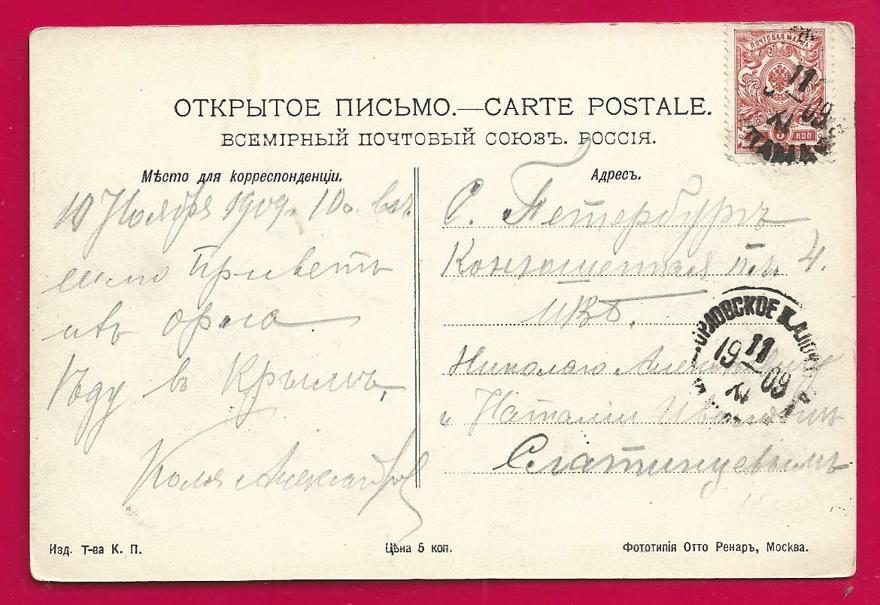 ОТКРЫТОЕ ПИСЬМО.—CARTE POSTALE.
ВСЕМІРНЫЙ ПОЧТОВЫЙ СОЮЗЪ. РОССІЯ.
ПОЧТОВАЯ МАРКА
КОП
11
09
Мѣсто для корреспонденціи.
10 Ноября 1909 г. 10
Привѣтъ
изъ Орла
Ѣду въ Крымъ,
Коля Александров
Адресъ.
С. Петербургъ
Конюшенная пл. 4.
кв.
Николаю
и Наталіи
Слатинцевымъ
ОРЛОВСКОЕ
19 11 09
Изд. Т-ва К. П.
Цѣна 5 коп.
Фототипія Отто Ренаръ, Москва.